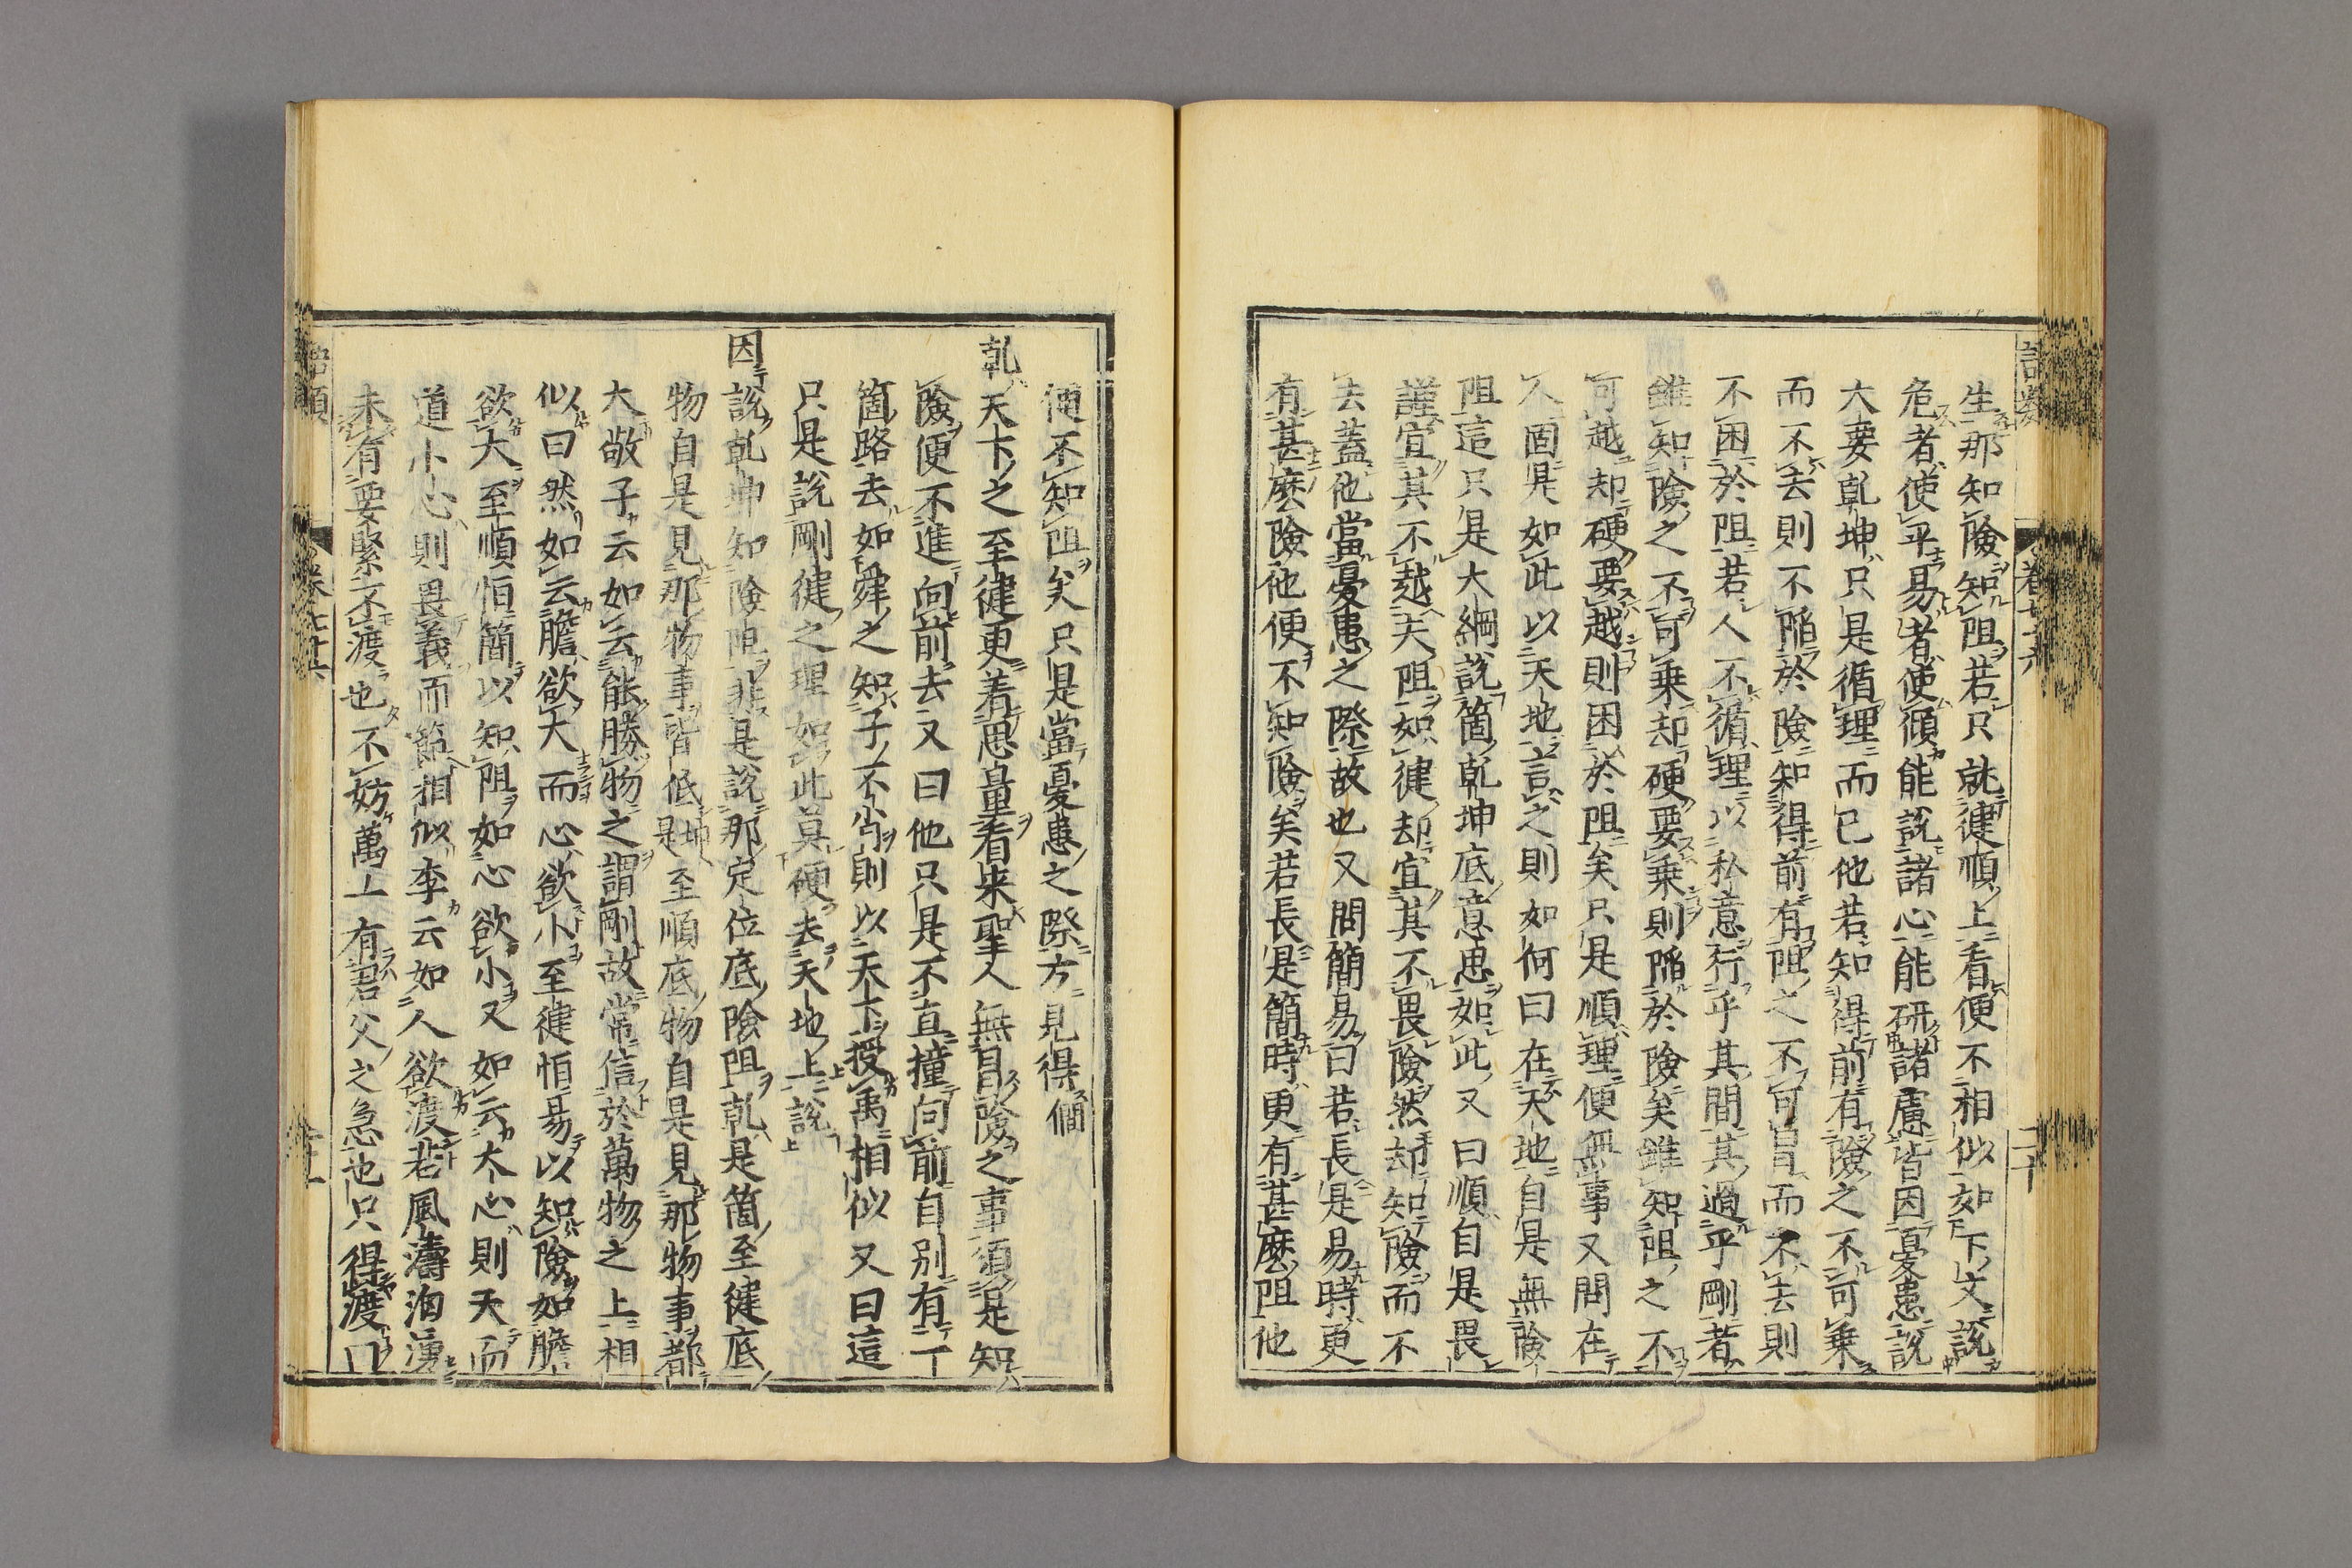 生那知險知阻若只就健順上看便不相似如下文說
危者使平易者使傾能說諸心能研諸慮皆因憂患說
大要乾坤只是循理而已他若知得前有險之不可乗
而不去則不陥於險知得前有阻之不可冒而不去則
不困於阻若人不循理以私意行乎其間其過乎剛者
雖知險之不可乗却硬要乗則陥於險矣雖知阻之不
可越却硬要越則困於阻矣只是順理便無事又問在
人固是如此以天地言之則如何曰在天地自是無險
阻這只是大綱說箇乾坤底意思如此又曰順自是畏
謹宜其不越夫阻如健却宜其不畏險然却知險而不
去蓋他當憂患之際故也又問簡易曰若長是易時更
有甚麽險他便不知險矣若長是簡時更有甚麽阻他
便不知阻矣只是當憂患之際方見得 僩
乾天下之至健更着思量看来聖人無冒險之事須是知
險便不進向前去又曰他只是不直撞向前自别有一
箇路去如舜之知子不肖則以天下授禹相似又曰這
只是說剛健之理如此莫硬去天地上說
因說乾坤知險阻非是說那定位底險阻乾是箇至健底
物自是見那物事皆低坤是至順底物自是見那物事都
大敬子云如云能勝物之謂剛故常信於萬物之上相
似曰然如云膽欲大而心欲小至健恒易以知險如膽
欲大至順恒簡以知阻如心欲小又如云大心則天而
道小心則畏義而節相似李云如人欲渡若風濤洶湧
未有要緊不渡也不妨萬一有君父之急也只得渡
卷七十六
二十